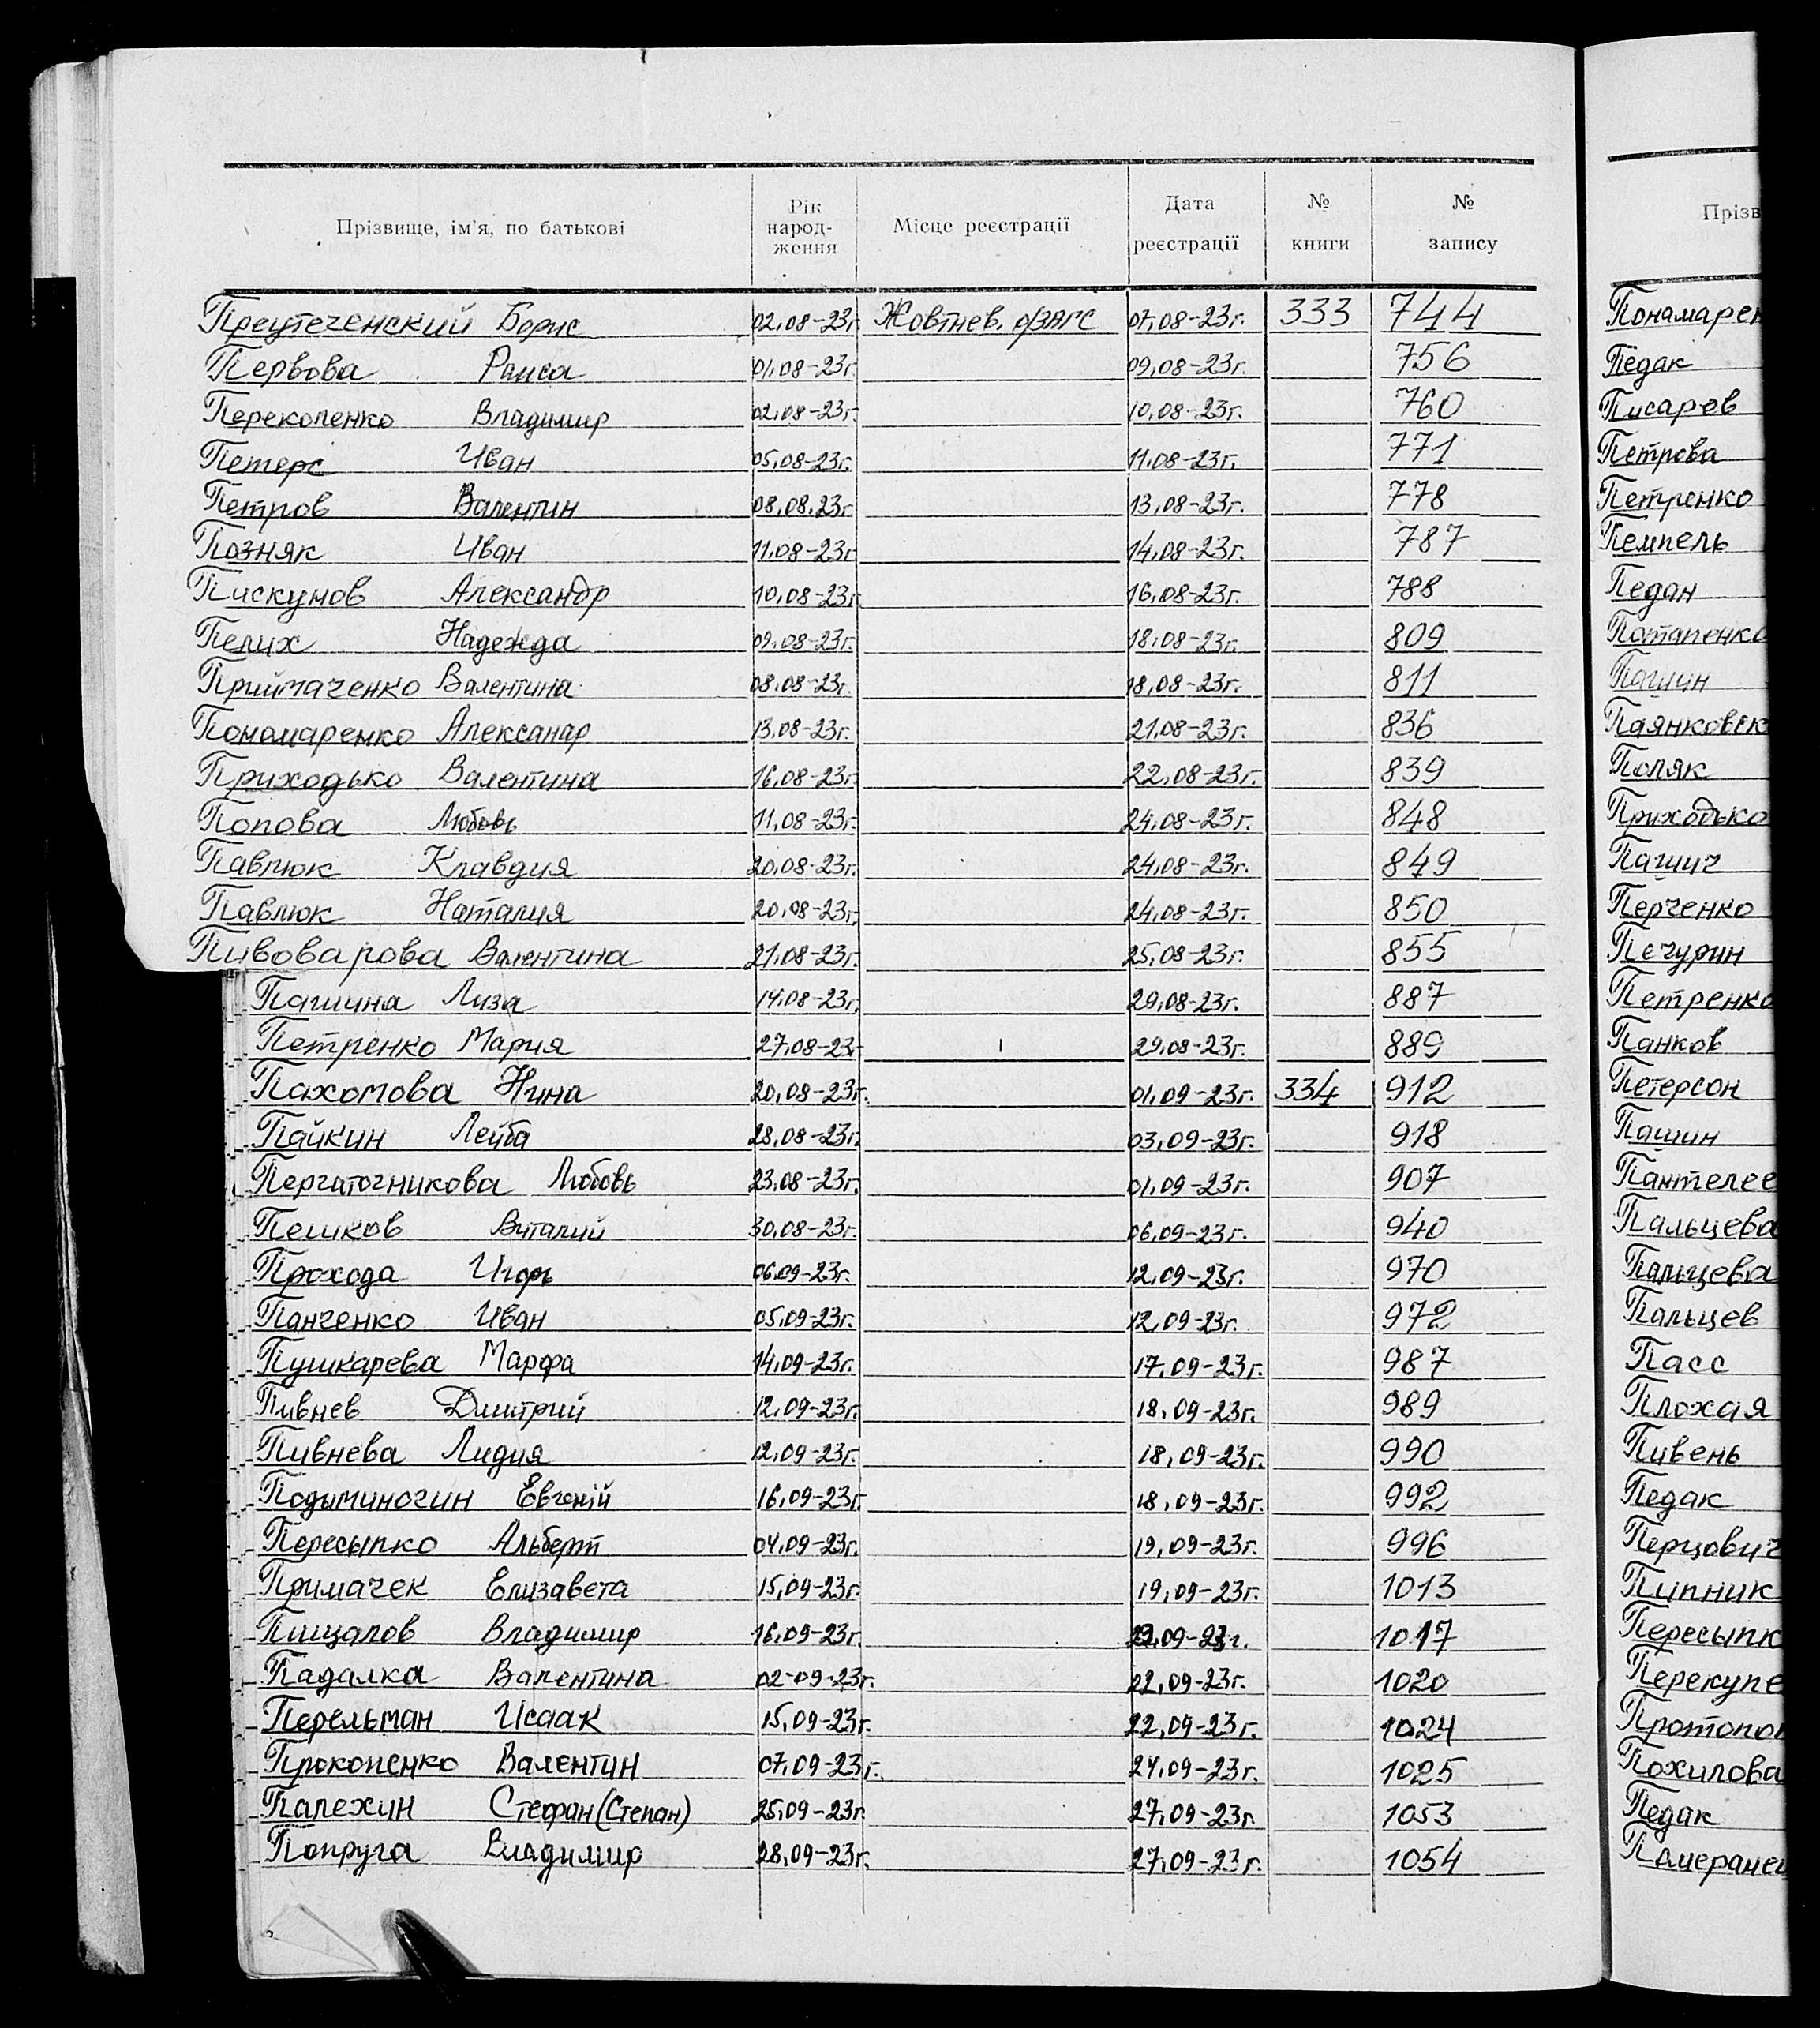 Прізвище, ім'я, по батькові Рік народ-ження Місце реєстрації Дата реєстрації № книги № запису
Предтеченский Борис 02.08-23г. Жовтнев. р/ЗАГС 07.08-23г. 333 744
Первова Раиса 01.08-23г. 09.08-23г. 756
Перекопенко Владимир 02.08-23г. 10.08-23г. 760
Петерс Иван 05.08-23г. 11.08-23г. 771
Петров Валентин 08.08.23г. 13.08-23г. 778
Позняк Иван 11.08-23г. 14.08-23г. 787
Пискунов Александр 10.08-23г. 16.08-23г. 788
Пелих Надежда 09.08-23г. 18.08-23г. 809
Приймаченко Валентина 08.08-23г. 18.08-23г. 811
Пономаренко Александр 13.08-23г. 21.08-23г. 836
Приходько Валентина 16.08-23г. 22.08-23г. 839
Попова Любовь 11.08-23г. 24.08-23г. 848
Павлюк Клавдия 20.08-23г. 24.08-23г. 849
Павлюк Наталия 20.08-23г. 24.08-23г. 850
Пивоварова Валентина 21.08-23г. 25.08-23г. 855
Пашина Лиза 14.08-23г. 29.08-23г. 887
Петренко Мария 27.08-23г. 29.08-23г. 889
Пахомова Нина 20.08-23г. 01.09-23г. 334 912
Пайкин Лейба 28.08-23г. 03.09-23г. 918
Перчаточникова Любовь 23.08-23г. 01.09-23г. 907
Пешков Виталий 30.08-23г. 06.09-23г. 940
Прохода Игорь 06.09-23г. 12.09-23г. 970
Панченко Иван 05.09-23г. 12.09-23г. 972
Пушкарева Марфа 14.09-23г. 17.09-23г. 987
Пивнев Дмитрий 12.09-23г. 18.09-23г. 989
Пивнева Лидия 12.09-23г. 18.09-23г. 990
Подыминогин Евгеній 16.09-23г. 18.09-23г. 992
Пересыпко Альберт 04.09-23г. 19.09-23г. 996
Примачек Елизавета 15.09-23г. 19.09-23г. 1013
Пищалов Владимир 16.09-23г. 1017
Падалка Валентина 02-09-23г. 22.09-23г. 1020
Перельман Исаак 15.09-23г. 22.09-23г. 1024
Прокопенко Валентин 07.09-23г. 24.09-23г. 1025
Палехин Стефан (Степан) 25.09-23г. 27.09-23г. 1053
Попруга Владимир 28.09-23г. 27.09-23г. 1054
Прізв
Понамарен
Педак
Писарев
Петрова
Петренко
Темпель
Педан
Потапенко
Пашин
Паянковск
Поляк
Приходько
Пашич
Перченко
Печурин
Петренко
Панков
Петерсон
Пашин
Пантелее
Пальцева
Пальцева
Пальцев
Пасс
Плохая
Пивень
Педак
Перцович
Пипник
Пересыпк
Перекупе
Протопоп
Похилова
Педак
Памеранец